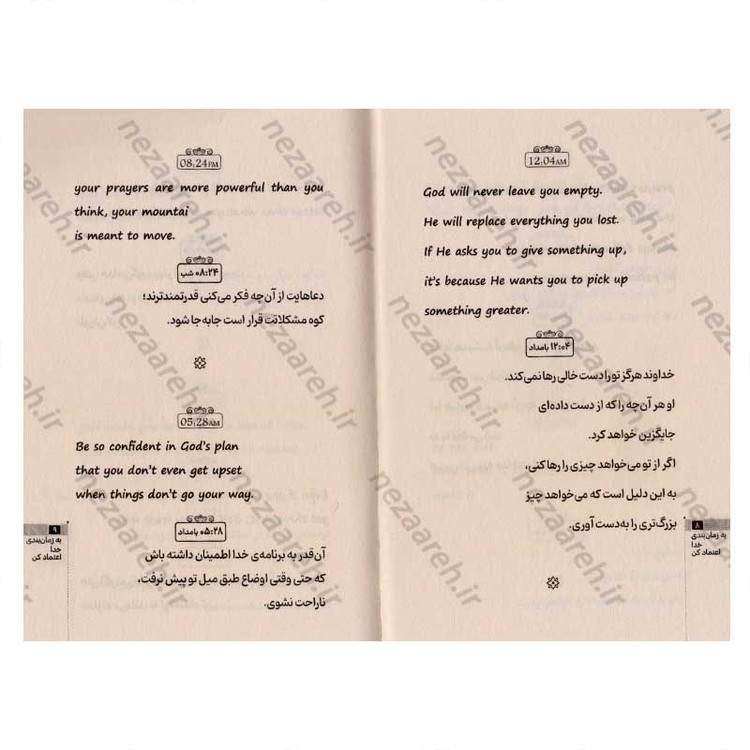 12,04AM
God will never leave you empty.
He will replace everything you lost.
If He asks you to give something up,
it's because He wants you to pick up
something greater.
۱۲:۰۴ بامداد
خداوند هرگز تو را دست خالی رها نمی‌کند.
او هر آن‌چه را که از دست داده‌ای
جایگزین خواهد کرد.
اگر از تو می‌خواهد چیزی را رها کنی،
به این دلیل است که می‌خواهد چیز
بزرگ‌تری را به‌دست آوری.
۸
به زمان‌بندی
خدا
اعتماد کن
08,24PM
your prayers are more powerful than you
think, your mountai
is meant to move.
۰۸:۲۴ شب
دعاهایت از آن‌چه فکر می‌کنی قدرتمندترند؛
کوه مشکلاتت قرار است جابه‌جا شود.
05:28AM
Be so confident in God's plan
that you don't even get upset
when things don't go your way.
۰۵:۲۸ بامداد
آن‌قدر به برنامه‌ی خدا اطمینان داشته باش
که حتی وقتی اوضاع طبق میل تو پیش نرفت،
ناراحت نشوی.
۹
به زمان‌بندی
خدا
اعتماد کن
nezaareh.ir
nezaareh.ir
nezaareh.ir
nezaareh.ir
nezaareh.ir
nezaareh.ir
nezaareh.ir
nezaareh.ir